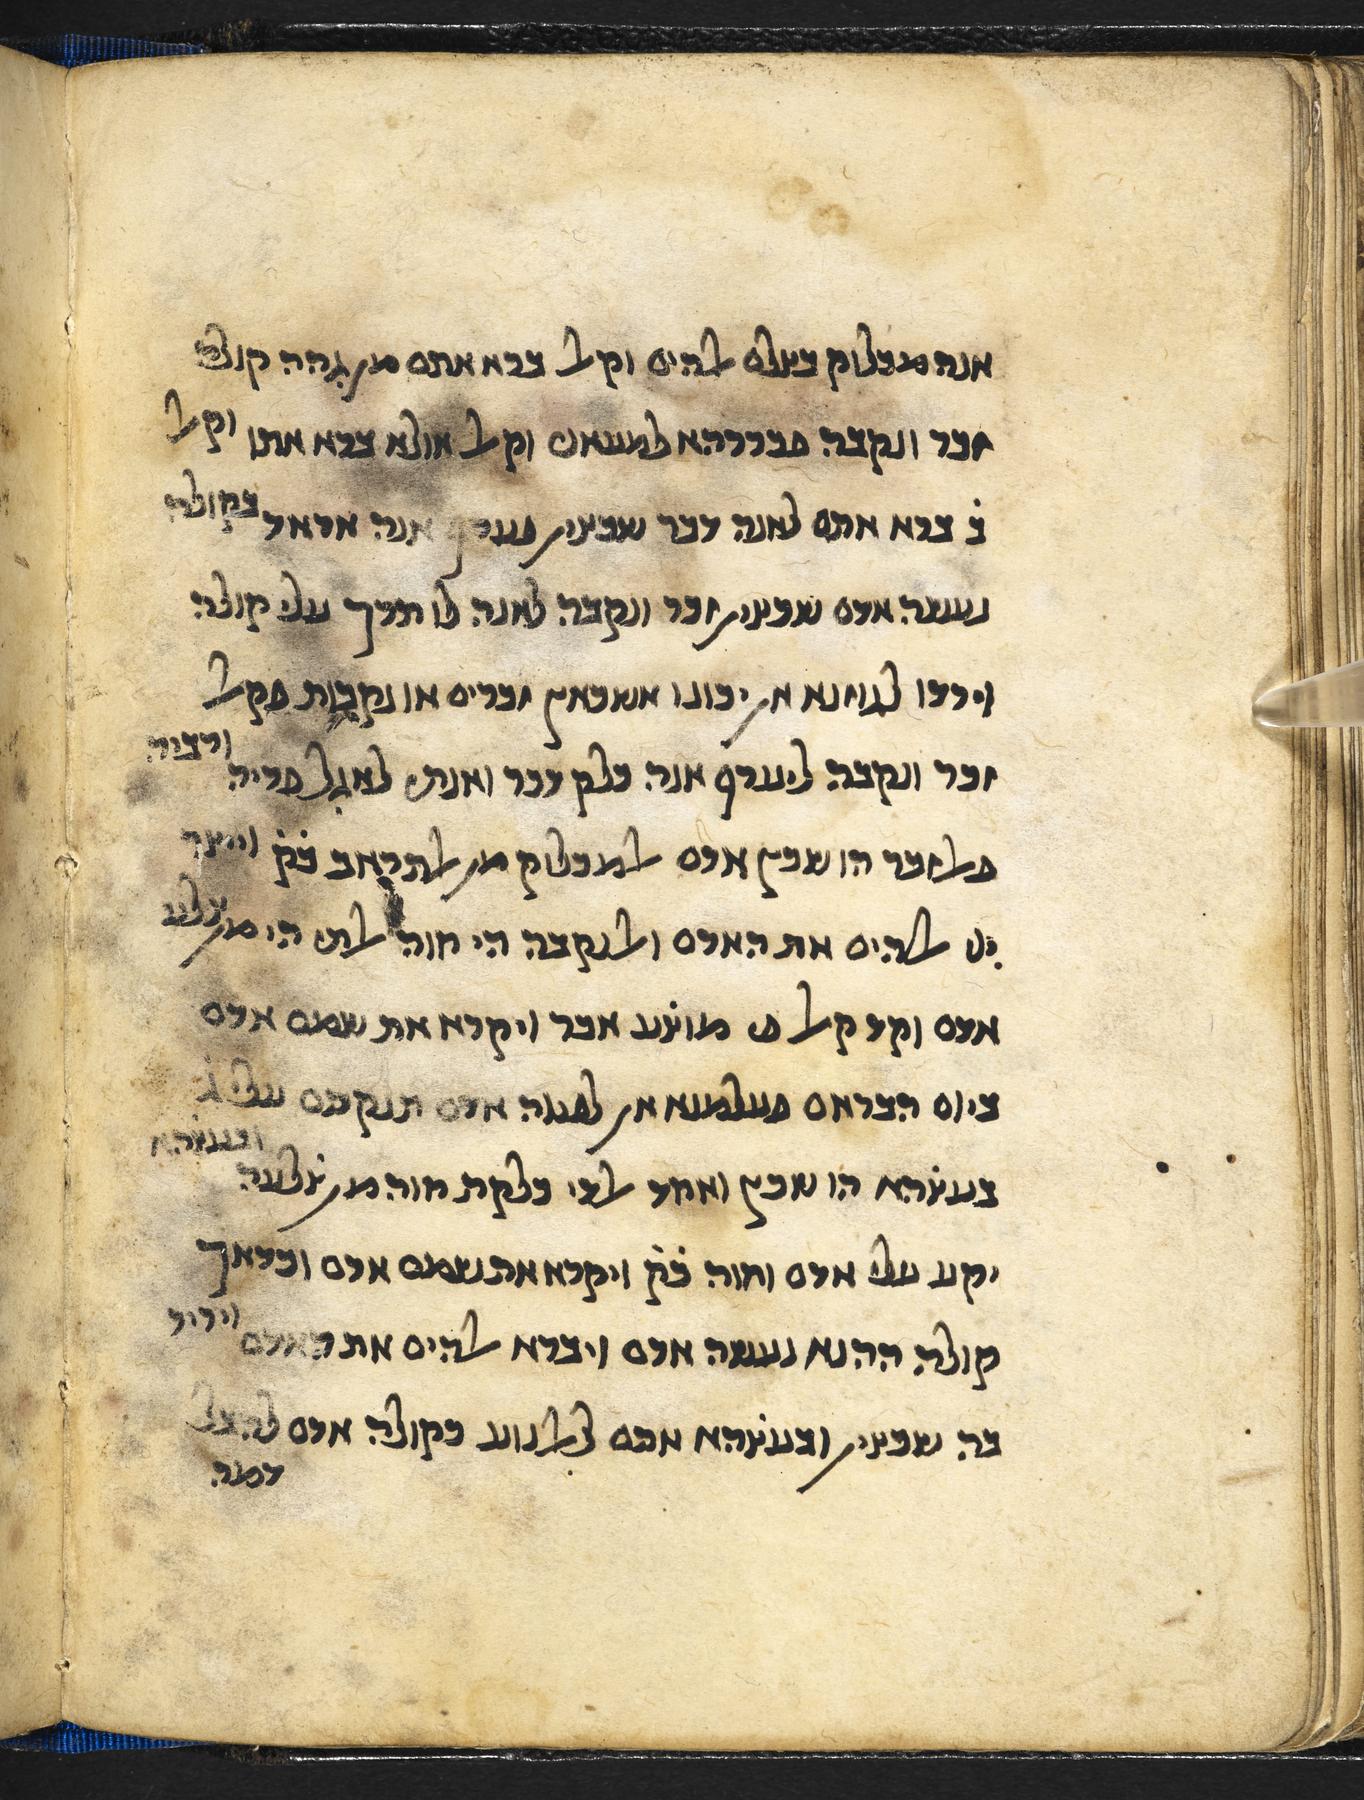 אנה מכלוק בצלם אלהים וקאל ברא אתם מן גהה קולה
זכר ונקבה פכררהא למעאני וקאל אולא ברא אתו וקאל
ב̇ ברא אתם לאנה דכר שכצין פערף אנה אראד בקולה
נעשה אדם שכצין זכר ונקבה לאנה לו תרך עלי קולה
וירדו לגוזנא אן יכונו אשכאץ זכרים או נקבות פקאל
זכר ונקבה ליערף אנה כלק דכר ואנתי לאגל פריה ורביה
פאלזכר הו שכץ אדם אלמכלוק מן אלתראב כ̇ק̇ וייצר
ייי אלהים את האדם ואלנקבה הי חוה אלתי הי מן צלע
אדם וקד קאל פי מוצ̇ע אכר ויקרא את שמם אדם
ביום הבראם פעלמנא אן לפטה אדם תנקסם עלי ג̇
בעצ̇הא הו שכץ ואחד אלדי כלקת חוה מן צ̇לעה ובעצ̇הא
יקע עלי אדם וחוה כ̇ק̇ ויקרא את שמם אדם וכדאך
קולה ההנא נעשה אדם ויברא אלהים את האדם ויריד
בה שכצין ובעצ̇הא אסם ללנוע כקולה אדם להבל
דמה